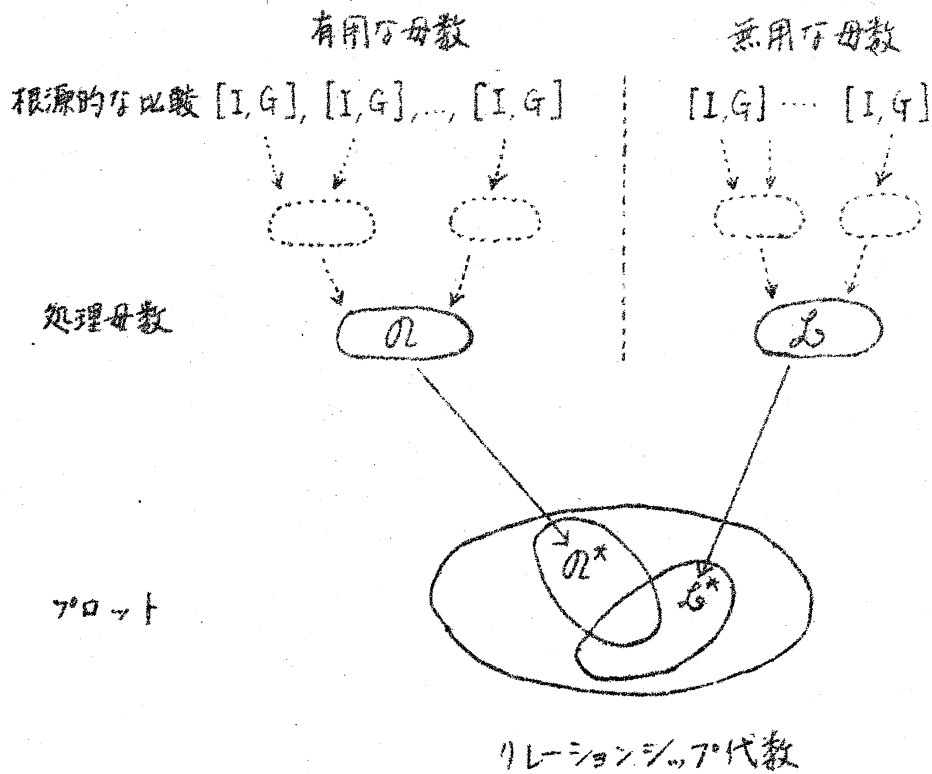 有用な母数
無用な母数
根源的な比較 [I,G], [I,G],..., [I,G]
[I,G] ···· [I,G]
処理母数
プロット
リレーションシップ代数